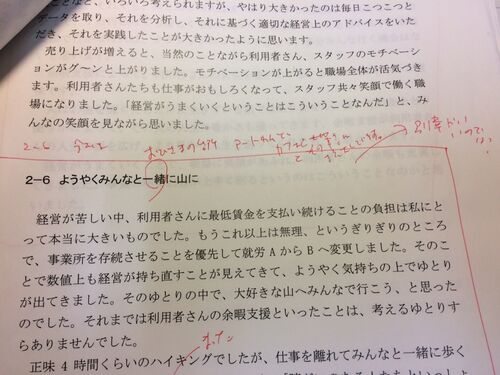 など、いろいろ考えられますが、やはり大きかったのは毎日こつこつと
データを取り、それを分析し、それに基づく適切な経営上のアドバイスをいた
だき、それを実践したことが大きかったように思います。
売り上げが増えると、当然のことながら利用者さん、スタッフのモチベーシ
ョンがグ〜ンと上がりました。モチベーションが上がると職場全体が活気づき
ます。利用者さんたちも仕事がおもしろくなって、スタッフ共々笑顔で働く職
場になりました。「経営がうまくいくということはこういうことなんだ」と、み
んなの笑顔を見ながら思いました。
2-6
2-6 ようやくみんなと一緒に山に
経営が苦しい中、利用者さんに最低賃金を支払い続けることの負担は私にと
って本当に大きいものでした。もうこれ以上は無理、というぎりぎりのところ
で、事業所を存続させることを優先して就労 A から B へ変更しました。そのこ
とで数値上も経営が持ち直すことが見えてきて、ようやく気持ちの上でゆとり
が出てきました。そのゆとりの中で、大好きな山へみんなで行こう、と思った
のでした。それまでは利用者さんの余暇支援といったことは、考えるゆとりす
らありませんでした。
正味 4 時間くらいのハイキングでしたが、仕事を離れてみんなと一緒に歩く